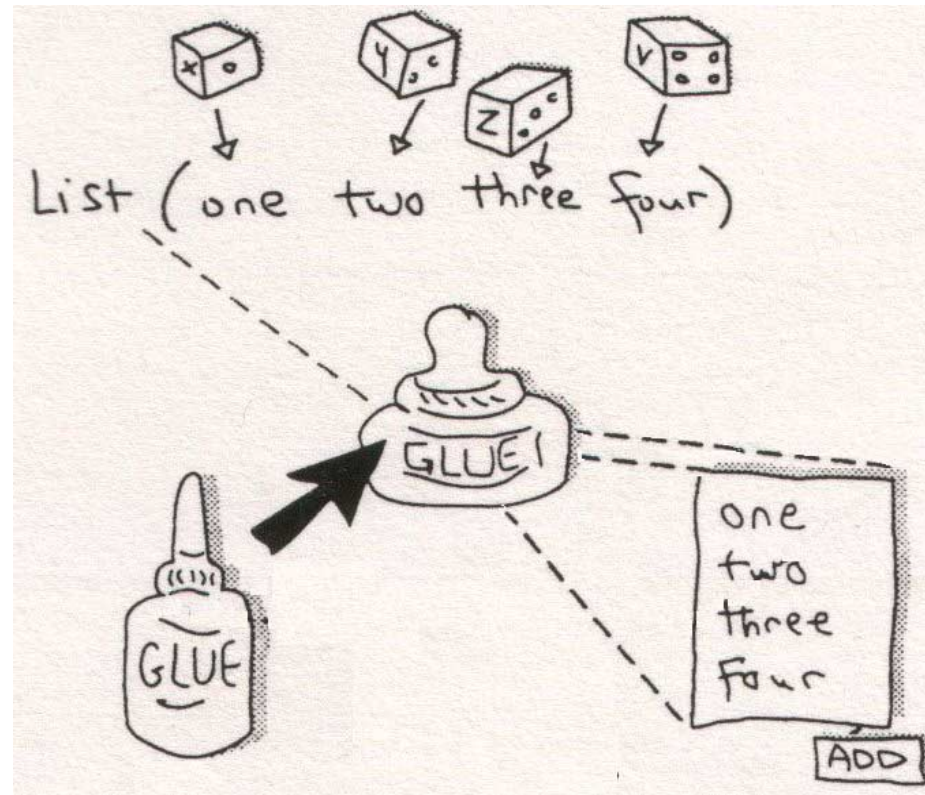 x
Y
Z
V
List (one two three four)
GLUE!
GLUE
one
two
three
four
ADD